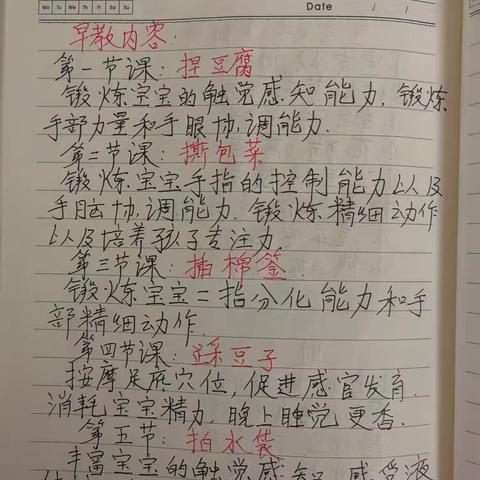 Mo Tu We Th Fr Sa Su Date / /
早教内容:
第一节课:捏豆腐
锻炼宝宝的触觉感知能力,锻炼
手部力量和手眼协调能力.
第二节课:撕包菜
锻炼宝宝手指的控制能力以及
手脑协调能力.锻炼精细动作
以及培养孩子专注力.
第三节课:插棉签.
锻炼宝宝二指分化能力和手
部精细动作.
第四节课:踩豆子
按摩足底穴位,促进感官发育.
消耗宝宝精力,晚上睡觉更香.
第五节:拍水袋
丰富宝宝的触觉感知,感受液